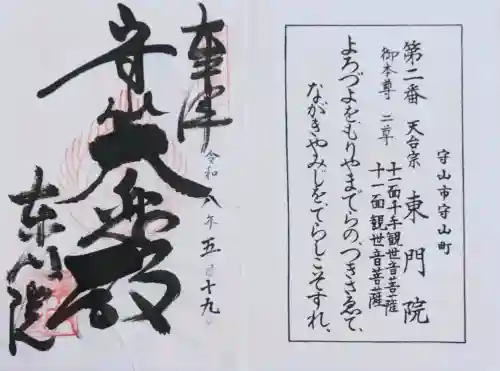 守山市守山町
第二番 天台宗 東門院
御本尊 二尊 十一面千手観世音菩薩
十一面観世音菩薩
よろづよをもりやまでらの、つきさゑて、
ながきやみじをてらしこそすれ、
奉拝
令和八年五月十九日
大悲殿
東門院